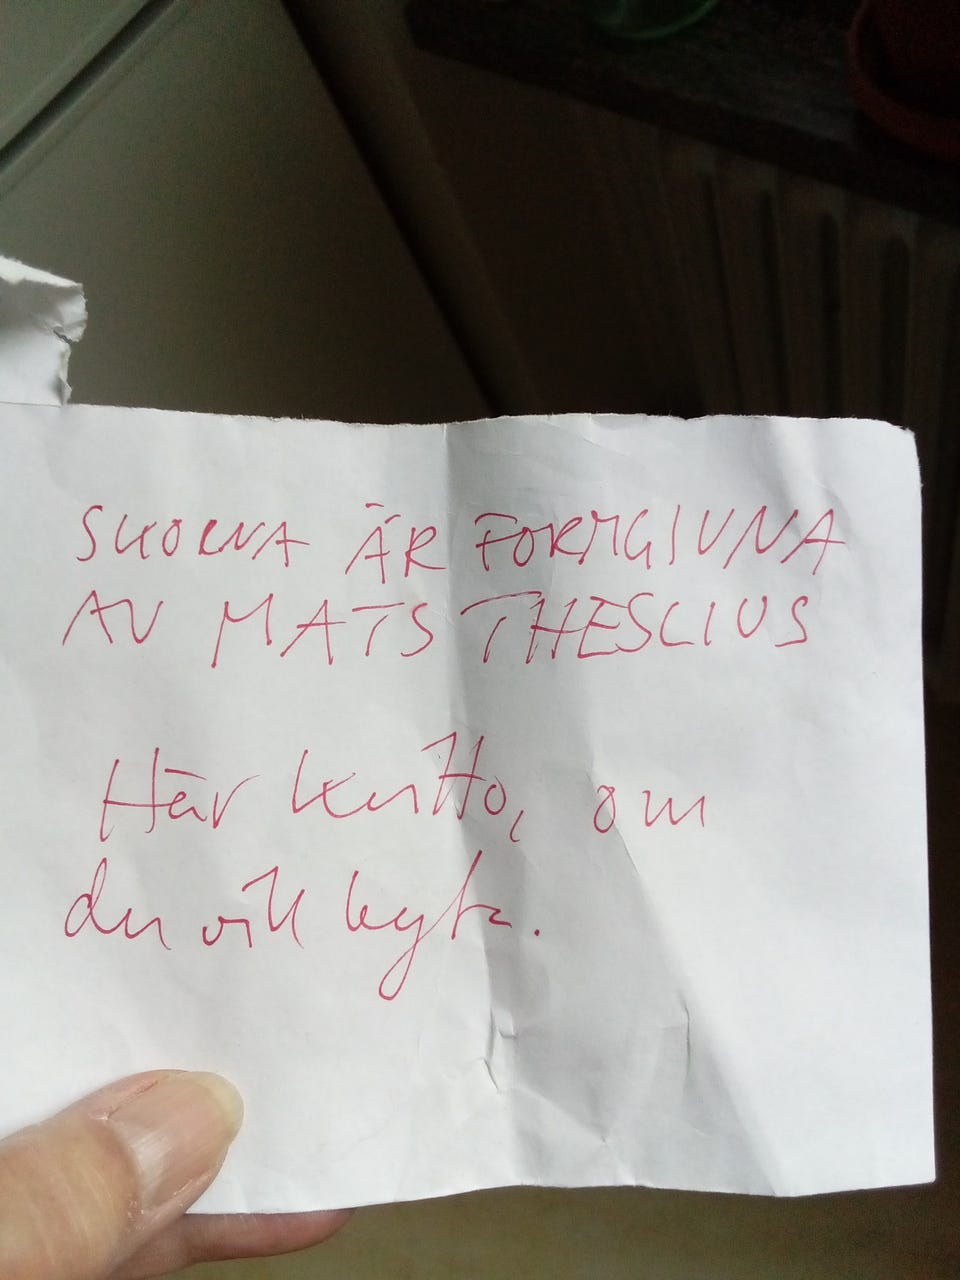 SKORNA ÄR FORMGIVNA
AV MATS THESELIUS
Här kvitto, om
du vill byta.